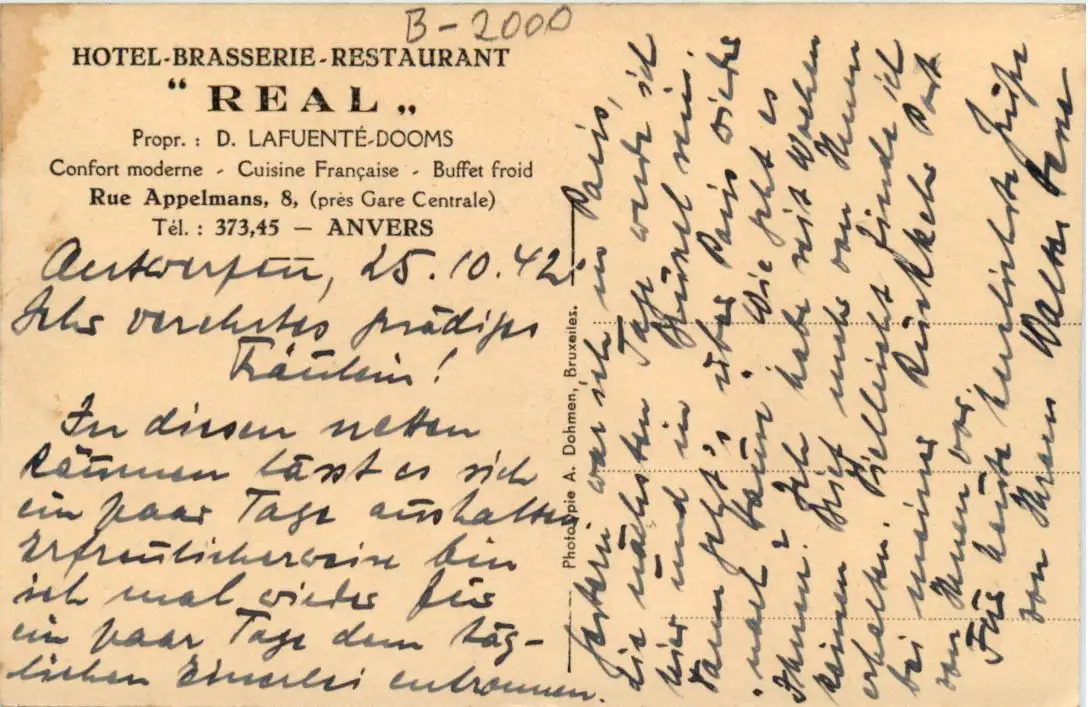 B-2000
HOTEL-BRASSERIE-RESTAURANT
“ REAL „
Propr. : D. LAFUENTÉ-DOOMS
Confort moderne - Cuisine Française - Buffet froid
Rue Appelmans, 8, (près Gare Centrale)
Tél. : 373,45 — ANVERS
Antwerpen, 25.10.42.
Sehr verehrtes gnädiges
Fräulein!
In diesen netten
Räumen lässt es sich
ein paar Tage aushalten.
Erfreulicherweise bin
ich mal wieder für
ein paar Tage dem täg-
lichen Einerlei entronnen.
Photot A. Dohmen, Bruxelles.
Gestern war ich in Paris,
die nächsten Tage werde ich
hier und in sein.
Dann geht's über Paris wieder
nach . Wie geht es
Ihnen? Ich habe seit Wochen
keinen Brief mehr von Ihnen
erhalten. Vielleicht finde ich
bei meiner Rückkehr Post
von Ihnen vor.
Für heute herzlichste Grüße
von Ihrem Walter